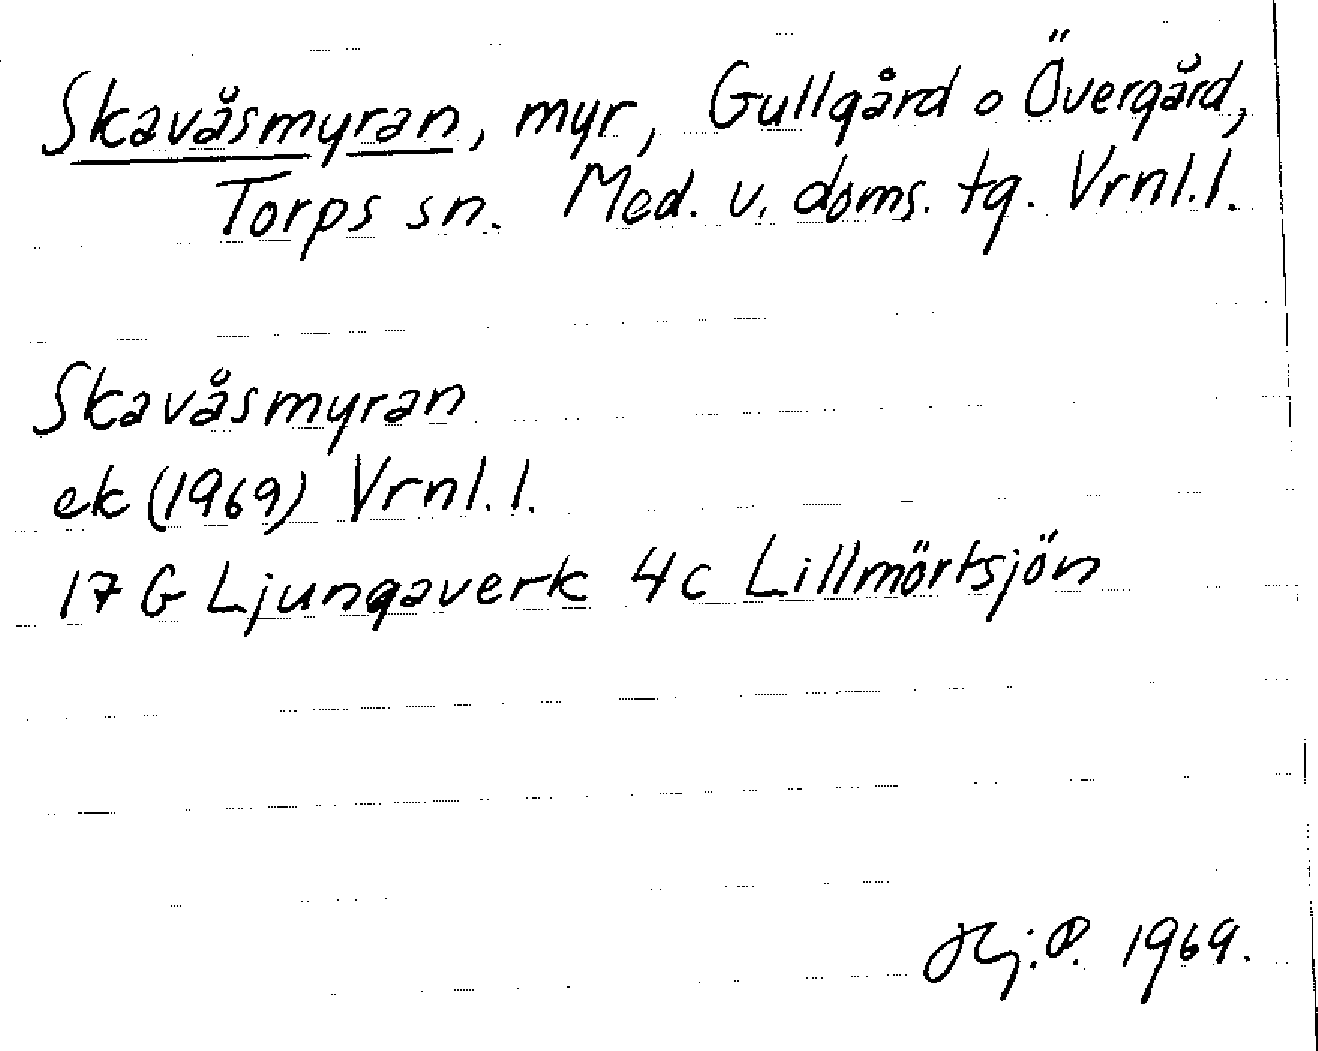 Skavåsmyran, myr, Gullgård o Övergård,
Torps sn. Med. v. doms. tg. Vrnl. l.
Skavåsmyran
ek (1969) Vrnl. l.
17 G Ljungaverk 4c Lillmörtsjön
Hj. P. 1969.